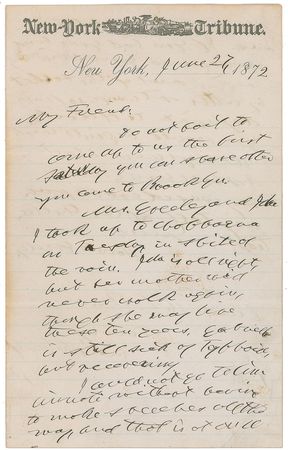 New-York Tribune.
New York, June 27, 1872
My Friend:
Do not fail to
come up to us the first
Saturday you can spare after
you come to Brooklyn.
Mrs. Greeley and Ida
I took up to Chappaqua
on Tuesday in spite of
the rain. Ida is all right,
but her mother will
never walk again,
though she may live
these ten years. Gabrielle
is still sick of typhoid,
but recovering.
I could not go to
without having
to make speeches all the
way and that is not well